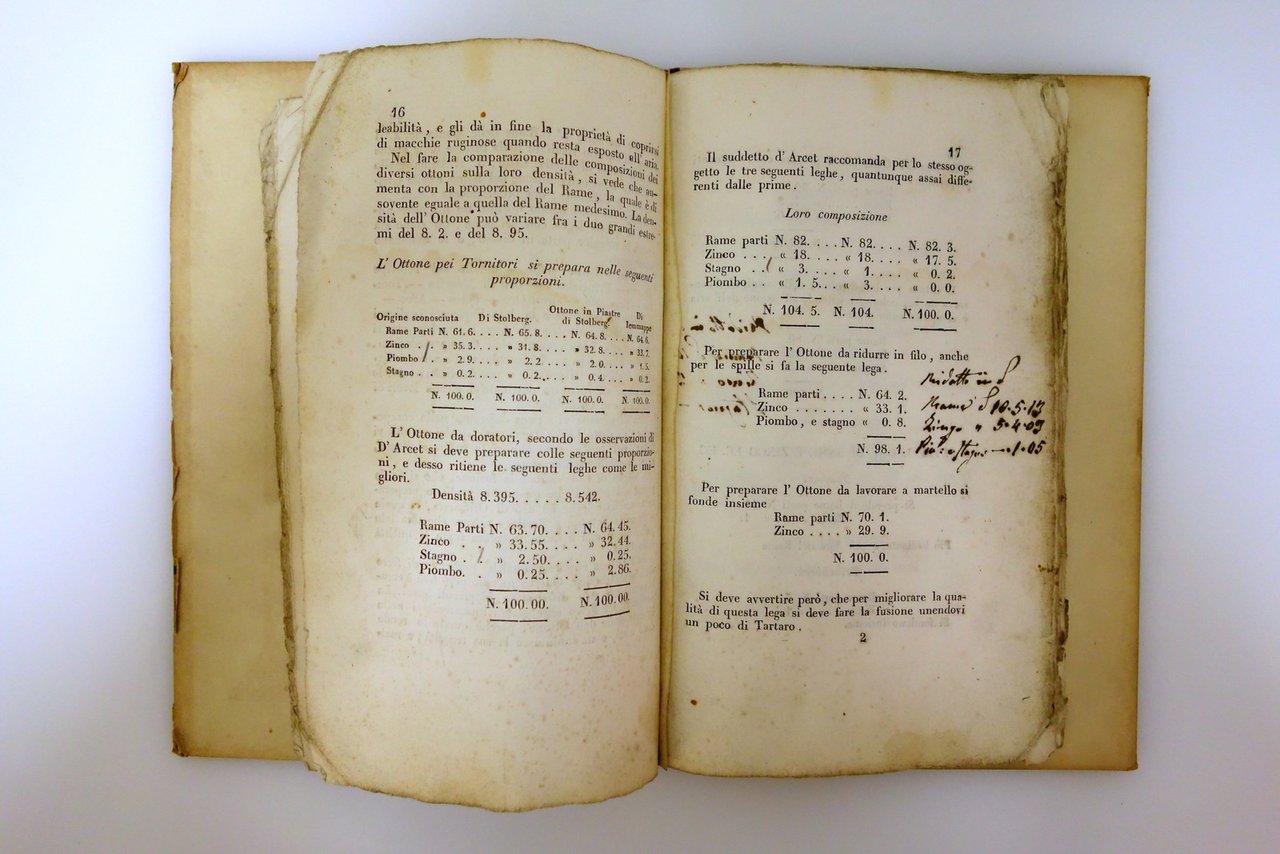 16
leabilità, e gli dà in fine la proprietà di coprirsi
di macchie ruginose quando resta esposto all' aria.
Nel fare la comparazione delle composizioni dei
diversi ottoni sulla loro densità, si vede che au-
menta con la proporzione del Rame, la quale è di
sovente eguale a quella del Rame medesimo. La den-
sità dell' Ottone può variare fra i due grandi estre-
mi del 8. 2. e del 8. 95.
L' Ottone pei Tornitori si prepara nelle seguenti
proporzioni.
Origine sconosciuta Di Stolberg. Ottone in Piastre di Stolberg. Di Iemmappe
Rame Parti N. 61. 6. . . . N. 65. 8. . . . N. 64. 8. . . . N. 64. 6.
Zinco . . » 35. 3. . . . » 31. 8. . . . » 32. 8. . . . » 33. 7.
Piombo . » 2. 9. . . . » 2. 2 . . . . » 2. 0. . . . » 1. 5.
Stagno . . » 0. 2. . . . » 0. 2. . . . » 0. 4. . . . » 0. 2.
N. 100. 0. N. 100. 0. N. 100. 0. N. 100. 0.
L' Ottone da doratori, secondo le osservazioni di
D' Arcet si deve preparare colle seguenti proporzio-
ni, e desso ritiene le seguenti leghe come le mi-
gliori.
Densità 8. 395. . . . . 8. 542.
Rame Parti N. 63. 70. . . . N. 64. 45.
Zinco . . » 33. 55. . . . » 32. 44.
Stagno . . » 2. 50. . . . » 0. 25.
Piombo. . » 0. 25. . . . » 2. 86.
N. 100. 00. N. 100. 00.
17
Il suddetto d' Arcet raccomanda per lo stesso og-
getto le tre seguenti leghe, quantunque assai diffe-
renti dalle prime.
Loro composizione
Rame parti N. 82. . . . N. 82. . . . N. 82. 3.
Zinco . . . « 18. . . . « 18. . . . « 17. 5.
Stagno . . « 3. . . . « 1. . . . « 0. 2.
Piombo . . « 1. 5. . . « 3. . . . « 0. 0.
N. 104. 5. N. 104. N. 100. 0.
Per preparare l' Ottone da ridurre in filo, anche
per le spille si fa la seguente lega.
Rame parti . . . . N. 64. 2.
Zinco . . . . . . . « 33. 1.
Piombo, e stagno « 0. 8.
N. 98. 1.
Ridotto in
Rame 10-5-13
Zingo " 5-4-09
Per preparare l' Ottone da lavorare a martello si
fonde insieme
Rame parti N. 70. 1.
Zinco . . . . » 29. 9.
N. 100. 0.
Si deve avvertire però, che per migliorare la qua-
lità di questa lega si deve fare la fusione unendovi
un poco di Tartaro.
2